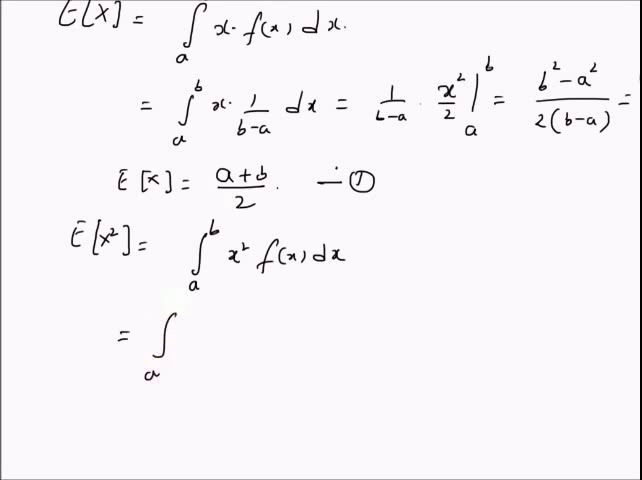 E[X] = ∫ₐ x· f(x) dx.
= ∫ₐᵇ x· 1/(b-a) dx = 1/(b-a) · x²/2 |ₐᵇ = (b²-a²)/(2(b-a)) =
E[x] = (a+b)/2. — ①
E[x²] = ∫ₐᵇ x² f(x) dx
= ∫ₐ